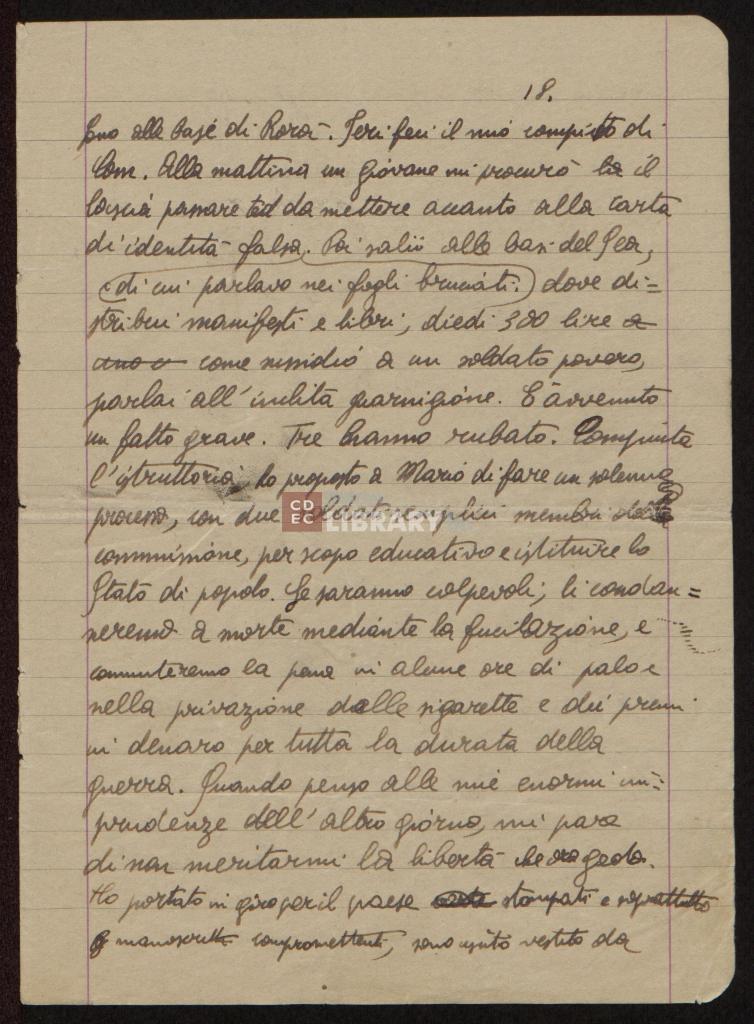 18.
Sono alla base di Rorà. Ieri feci il mio compito di
Com. Alla mattina un giovane mi procurò là il
lascia passare ted da mettere accanto alla carta
di identità falsa. Poi salii alle basi del Pea,
(di cui parlavo nei fogli bruciati.) dove di=
stribuii manifesti e libri, diedi 300 lire a
uno come sussidio a un soldato povero,
parlai all'inclita guarnigione. È avvenuto
un fatto grave. Tre hanno rubato. Compiuta
l'istruttoria, ho proposto a Mario di fare un solenne
processo, con due soldati semplici membri della
commissione, per scopo educativo e istituire lo
Stato di popolo. Se saranno colpevoli, li condan=
neremo a morte mediante la fucilazione, e
commuteremo la pena in alcune ore di palo e
nella privazione delle sigarette e dei premi
in denaro per tutta la durata della
guerra. Quando penso alle mie enormi im=
prudenze dell'altro giorno, mi pare
di non meritarmi la libertà che ora godo.
Ho portato in giro per il paese stampati e soprattutto
manoscritti compromettenti, sono uscito vestito da
CDEC LIBRARY